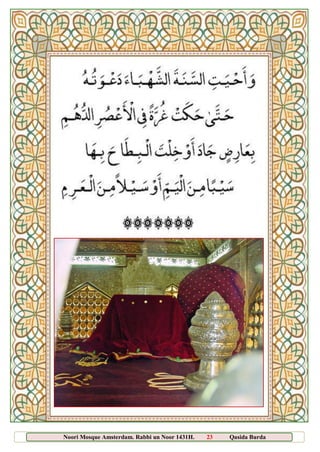 وَأَحْيَتِ السَّنَةَ الشَّهْبَاءَ دَعْوَتُهُ
حَتَّىٰ حَكَتْ غُرَّةً فِي الْأَعْصُرِ الدُّهُمِ
بِعَارِضٍ جَادَ أَوْ خِلْتَ الْبِطَاحَ بِهَا
سَيْبًا مِنَ الْيَمِّ أَوْ سَيْلاً مِنَ الْعَرِمِ
Noori Mosque Amsterdam. Rabbi un Noor 1431H. 23 Qasida Burda